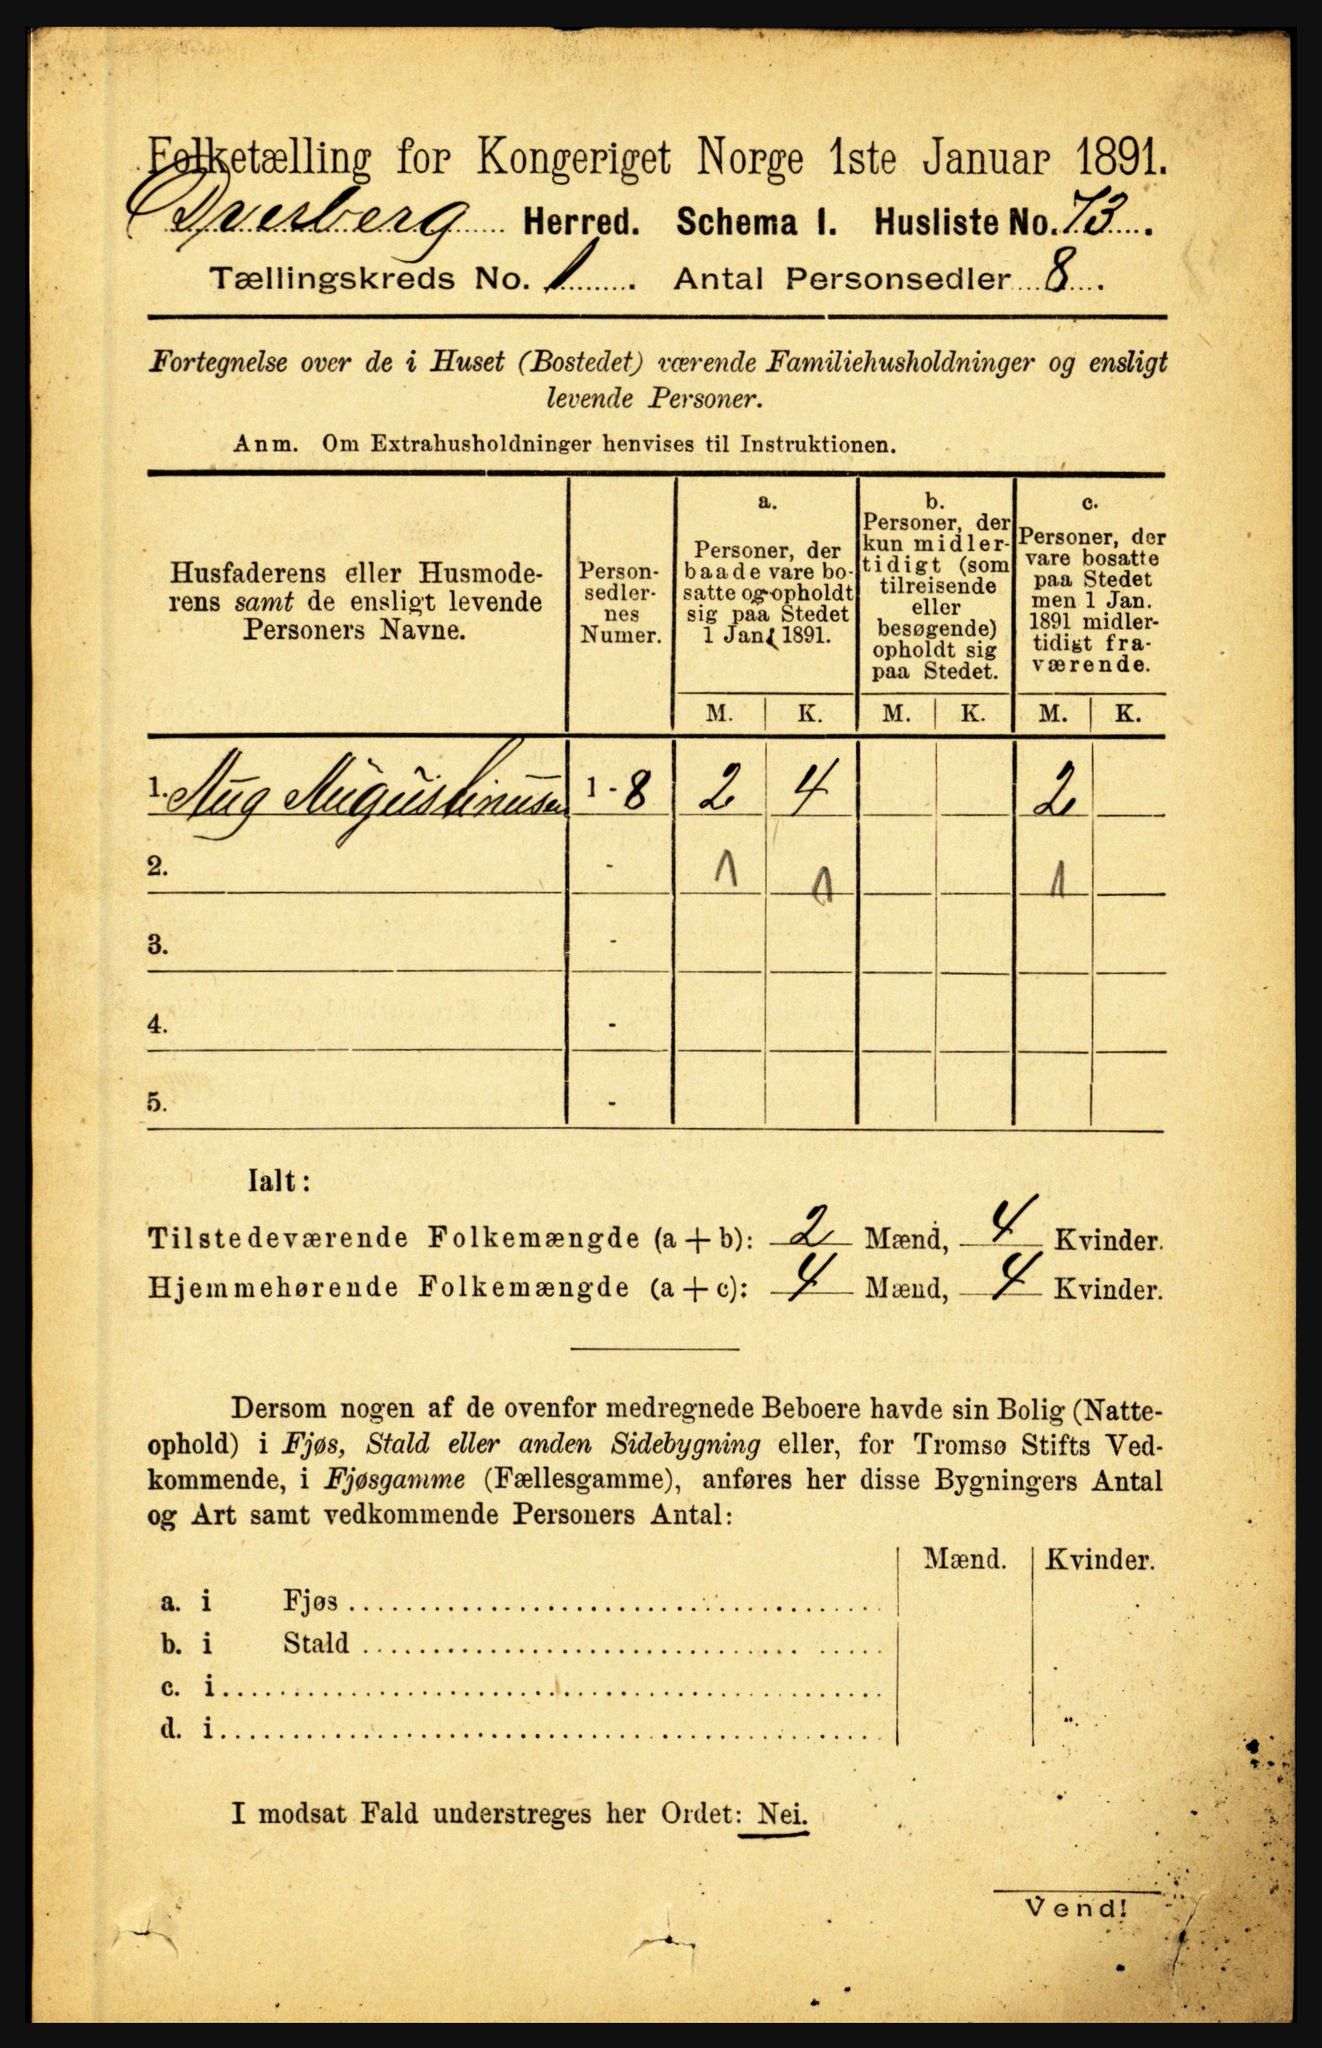 Folketælling for Kongeriget Norge 1ste Januar 1891.
Dverberg Herred. Schema I. Husliste No. 73.
Tællingskreds No. 1. Antal Personsedler 8.
Fortegnelse over de i Huset (Bostedet) værende Familiehusholdninger og ensligt
levende Personer.
Anm. Om Extrahusholdninger henvises til Instruktionen.
Husfaderens eller Husmode-
rens samt de ensligt levende
Personers Navne.
Person-
sedler-
nes
Numer.
a.
Personer, der
baade vare bo-
satte og opholdt
sig paa Stedet
1 Jan. 1891.
b.
Personer, der
kun midler-
tidigt (som
tilreisende
eller
besøgende)
opholdt sig
paa Stedet.
c.
Personer, der
vare bosatte
paa Stedet
men 1 Jan.
1891 midler-
tidigt fra-
værende.
M. K. M. K. M. K.
1. Aug Augustinusen 1 - 8 2 4 2
2. - 1 1 1
3. -
4. -
5. -
Ialt:
Tilstedeværende Folkemængde (a + b): 2 Mænd, 4 Kvinder.
Hjemmehørende Folkemængde (a + c): 4 Mænd, 4 Kvinder.
Dersom nogen af de ovenfor medregnede Beboere havde sin Bolig (Natte-
ophold) i Fjøs, Stald eller anden Sidebygning eller, for Tromsø Stifts Ved-
kommende, i Fjøsgamme (Fællesgamme), anføres her disse Bygningers Antal
og Art samt vedkommende Personers Antal:
Mænd. Kvinder.
a. i Fjøs
b. i Stald
c. i
d. i
I modsat Fald understreges her Ordet: Nei.
Vend!